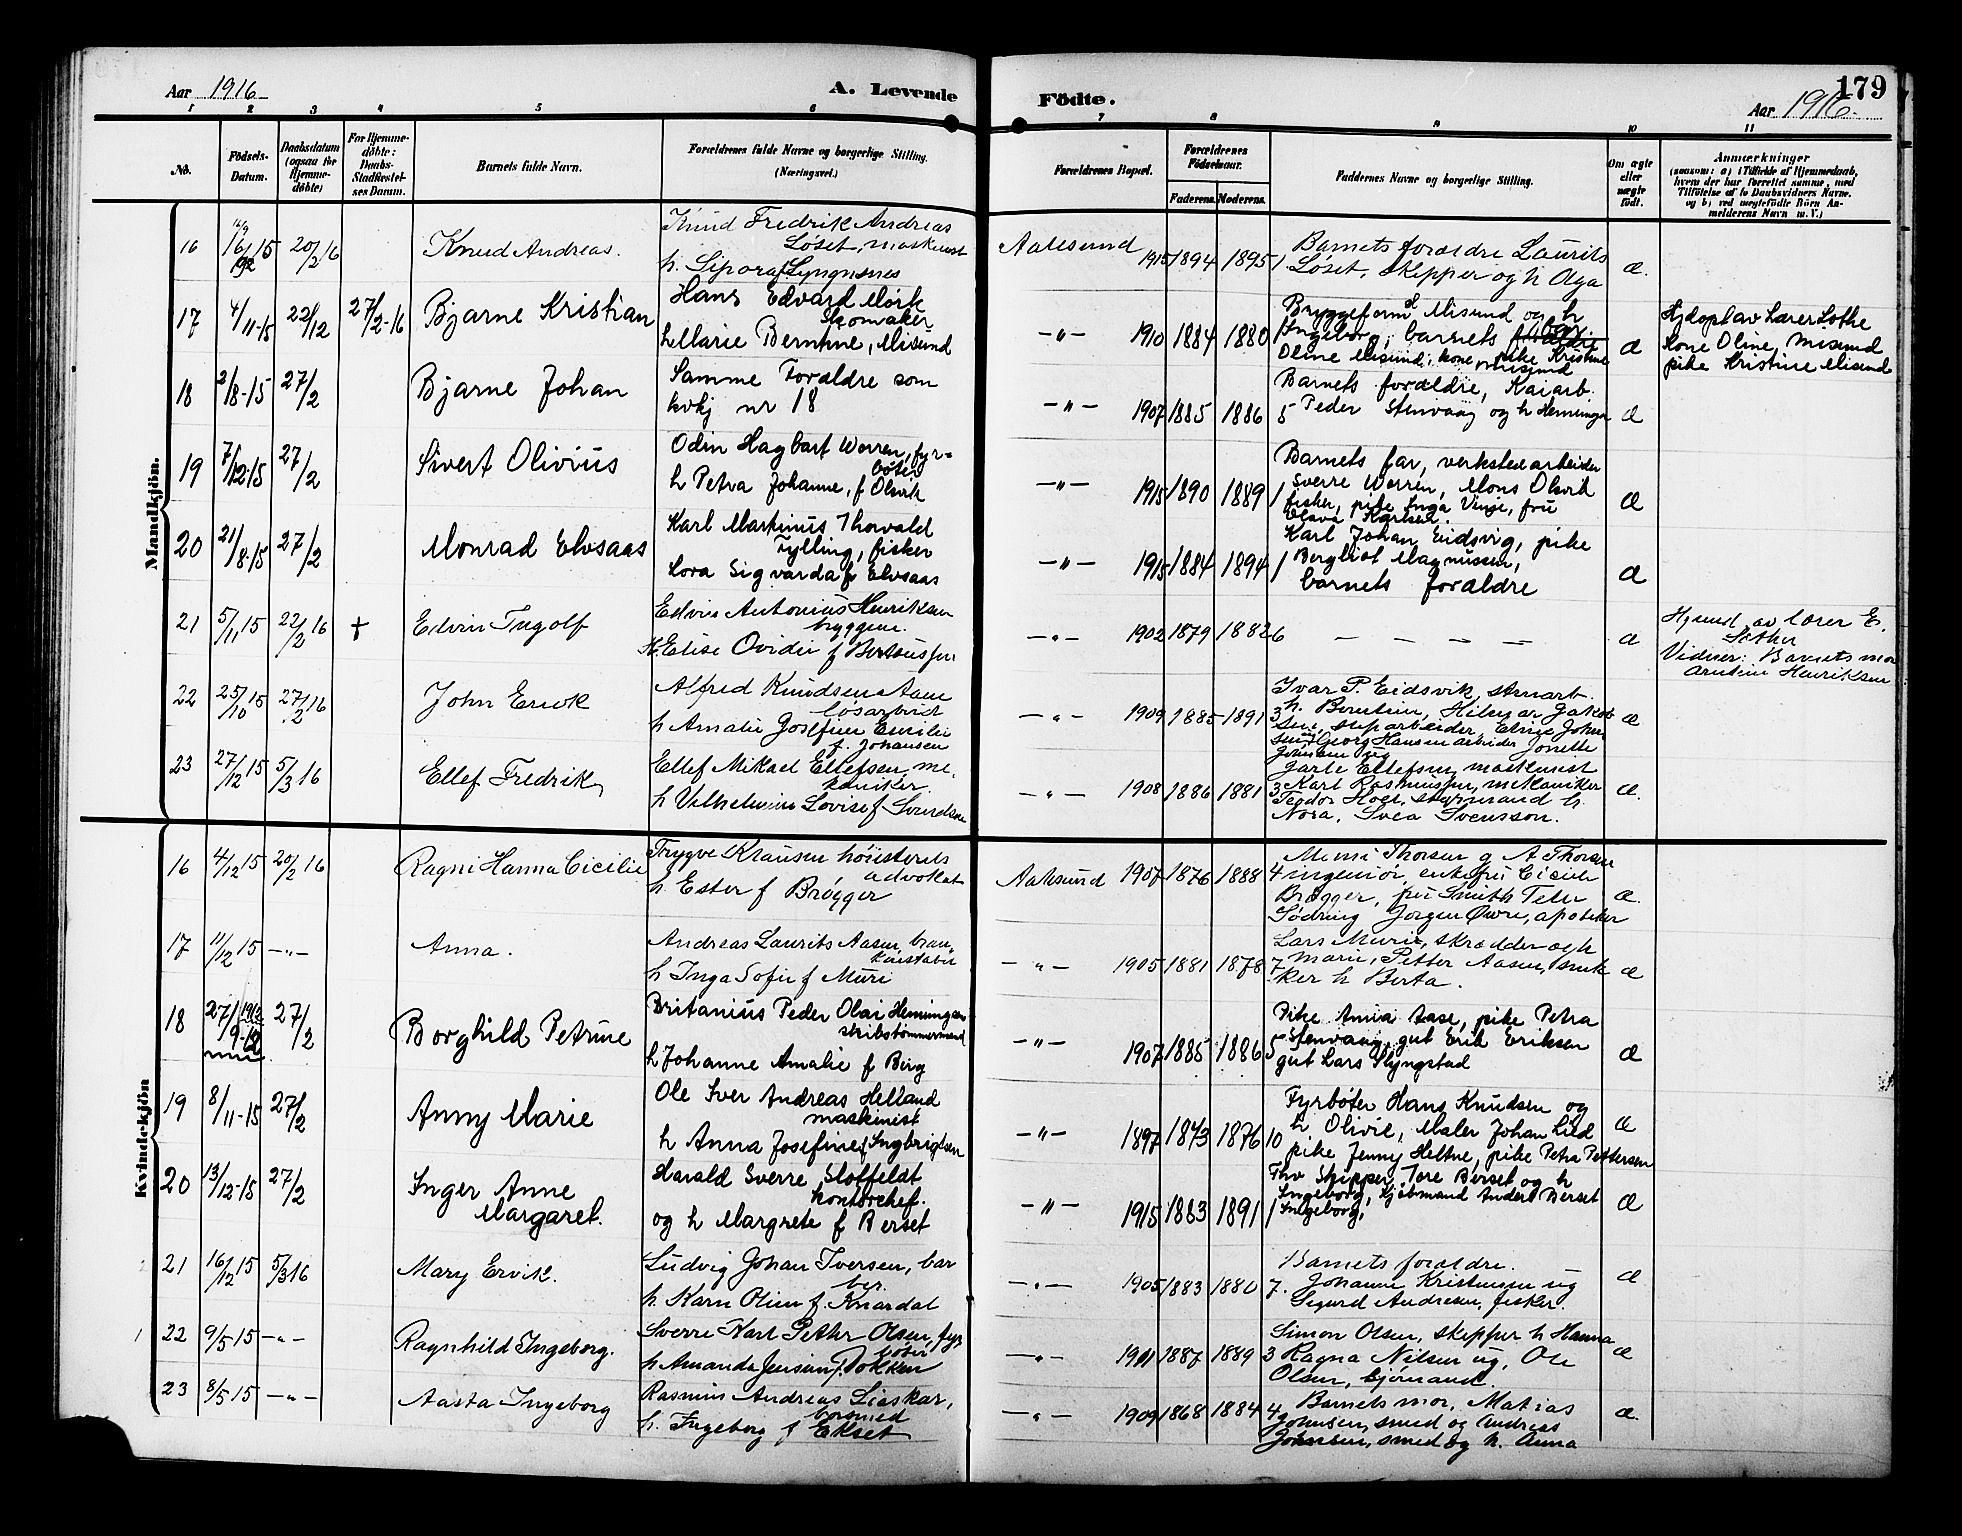 Aar 1916
A. Levende
Fødte.
179
Aar 1916.
1 2 3 4 5 6 7 8 9 10 11
No.
Födsels-
Datum.
Daabsdatum
(ogsaa for
Hjemme-
döbte)
For Hjemme-
döbte:
Daabs-
Stadfæstel-
ses Datum.
Barnets fulde Navn.
Forældrenes fulde Navne og borgerlige Stilling.
(Næringsvei.)
Forældrenes Bopæl.
Forældrenes
Fødselsaar.
Faderens. Moderens.
Faddernes Navne og borgerlige Stilling.
Om ægte
eller
uægte
født.
Anmærkninger
(saasom: a) i Tilfælde af Hjemmedaab,
hvem der har forrettet samme, med
Tilføielse af to Daabsvidners Navne,
og b) ved uægtefødte Börn An-
melderens Navn m. V.)
Mandkjön.
16
20/2 16
Knud Andreas.
Knud Fredrik Andreas
Løset, maskinist
h. Sipora f Lyngnes
Aalesund 1915 1894 1895 1
Barnets forældre Laurits
Løset, skipper og h Olga
æ.
17 4/11-15 22/12 27/2-16
Bjarne Kristian
Hans Edvard Mørk
Skomaker
h Marie Berntine, Misund
-"- 1910 1884 1880
Bryggeform Misund og h
Ingeborg, barnets
Oline Misund, kone, pike Kristine
Misund
æ
Hjdøpt av Lærer Lothe
Kone Oline, Misund
pike Kristine Misund
18 2/8-15 27/2
Bjarne Johan
Samme Forældre som
kvkj nr 18
-"- 1907 1885 1886 5
Barnets forældre, Kaiarb.
Peder Stenvaag og h Henninga
æ
19 7/12-15 27/2
Sivert Olivius
Odin Hagbart Worren, fyr-
bøter
h Petra Johanne, f Olsvik
-"- 1915 1890 1889 1
Barnets far, verkstedarbeider
Sverre Worren, Mons Olsvik
fisker, pike Inga Vinje, fru
Olava Karlsen.
æ
20 21/8-15 27/2
Monrad Elvsaas
Karl Martinus Thorvald
Fylling, fisker
Lora Sigvarda f Elvsaas
-"- 1915 1884 1894 1
Karl Johan Eidsvig, pike
Bergliot Magnussen,
barnets forældre
æ
21 5/11 15 22/2 16 +
Edvin Ingolf
Edvin Antonius Henriksen
bryggem.
h. Elise Ovidie f Bertheussen
-"- 1902 1879 1882 6
- - - - -
æ
Hjemd av lærer E.
Lothe
Vidner: Barnets mor
Arntine Henriksen
22 25/10 15 27/2 16
John Ervik
Alfred Knudsen Aam
løsarbeid
h Amalie Josefine Emilie
f. Johansen
-"- 1909 1885 1891 3
Ivar P. Eidsvik, stenarb.
h. Berntine, Hilmar Jakob
sen, sliparbeider, Elnie John
sen, Georg Hansen arbeider Jonette
Johansen ug
æ
23 27/12 15 5/3 16
Ellef Fredrik
Ellef Mikael Ellefsen, me-
kaniker.
h Vilhelmine Lovise f Svendsen
-"- 1908 1886 1881 3
Jarle Ellefsen, maskinist
Karl Rasmussen, mekaniker
Teodor Hoel, styrmand h.
Nora, Svea Svensson.
æ.
Kvindekjön
16 4/12 15 20/2 16
Ragni Hanna Cicilie
Trygve Klausen høiesterets
advokat
h. Ester f Brøgger
Aalesund 1907 1876 1888 4
Mimi Thorsen g A Thorsen
ingeniør, enkefru Cicilie
Brøgger, fru Smith Teller
Södring Jørgen Øwre, apoteker
æ.
17 11/12 15 -"-
Anna.
Andreas Laurits Aasen, bran-
konstabel
h Inga Sofie f Muri
-"- 1905 1881 1878 7
Lars Muri, skrædder og h
Marie, Petter Aasen, snik
ker h Berta.
æ
18 27/9 27/2
Borghild Petrine
Britanius Peder Olai Henningsen
skibstømmermand
h Johanne Amalie f Berg
-"- 1907 1885 1886 5
Pike Anna Aase, pike Petra
Stenvaag, gut Erik Eriksen
gut Lars Slyngstad
æ
19 8/11-15 27/2
Anny Marie
Ole Iver Andreas Helland
maskinist
h Anna Josefine f Ingbrigtsen
-"- 1897 1873 1876 10
Fyrbøter Hans Knudsen og
h Olivie, Maler Johan Lied
pike Jenny Heltne, pike Petra Pettersen
æ
20 13/12-15 27/2
Inger Anne
Margaret.
Harald Sverre Stoffeldt
Kontorchef.
og h Margrete f Berset
-"- 1915 1883 1891 1
Fhv Skipper Tore Berset og h
Ingeborg, Kjøbmand Anders Berset
Ingeborg,
æ
21 16/12 15 5/3 16
Mary Ervik.
Ludvig Johan Iversen, bar
ber.
h. Karn Oline f. Knardal
-"- 1905 1883 1880 7.
Barnets forældre.
Johanne Kristensen ug
Sigurd Andresen, fisker.
æ
1 22 9/5 15 -"-
Ragnhild Ingeborg.
Sverre Karl Petter Olsen, fyr
bøter
h. Amanda Jensine f. Dokken
-"- 1911 1887 1889 3
Simon Olsen, skipper h Hanna
Ragna Nilsen ug, Ole
Olsen, sjømand.
æ
23 8/5 15 -"-
Aasta Ingeborg
Rasmus Andreas Liaskar,
h. Ingeborg f Ekset
-"- 1909 1868 1884 4
Barnets mor, Matias
Johnsen, smed og Andreas
Johnsen, smed og h. Anna
æ.